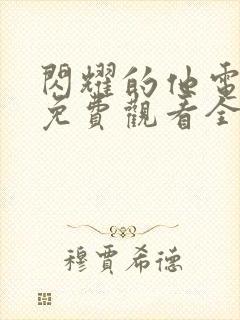 閃耀的他電
免費觀看全
穆賈希德